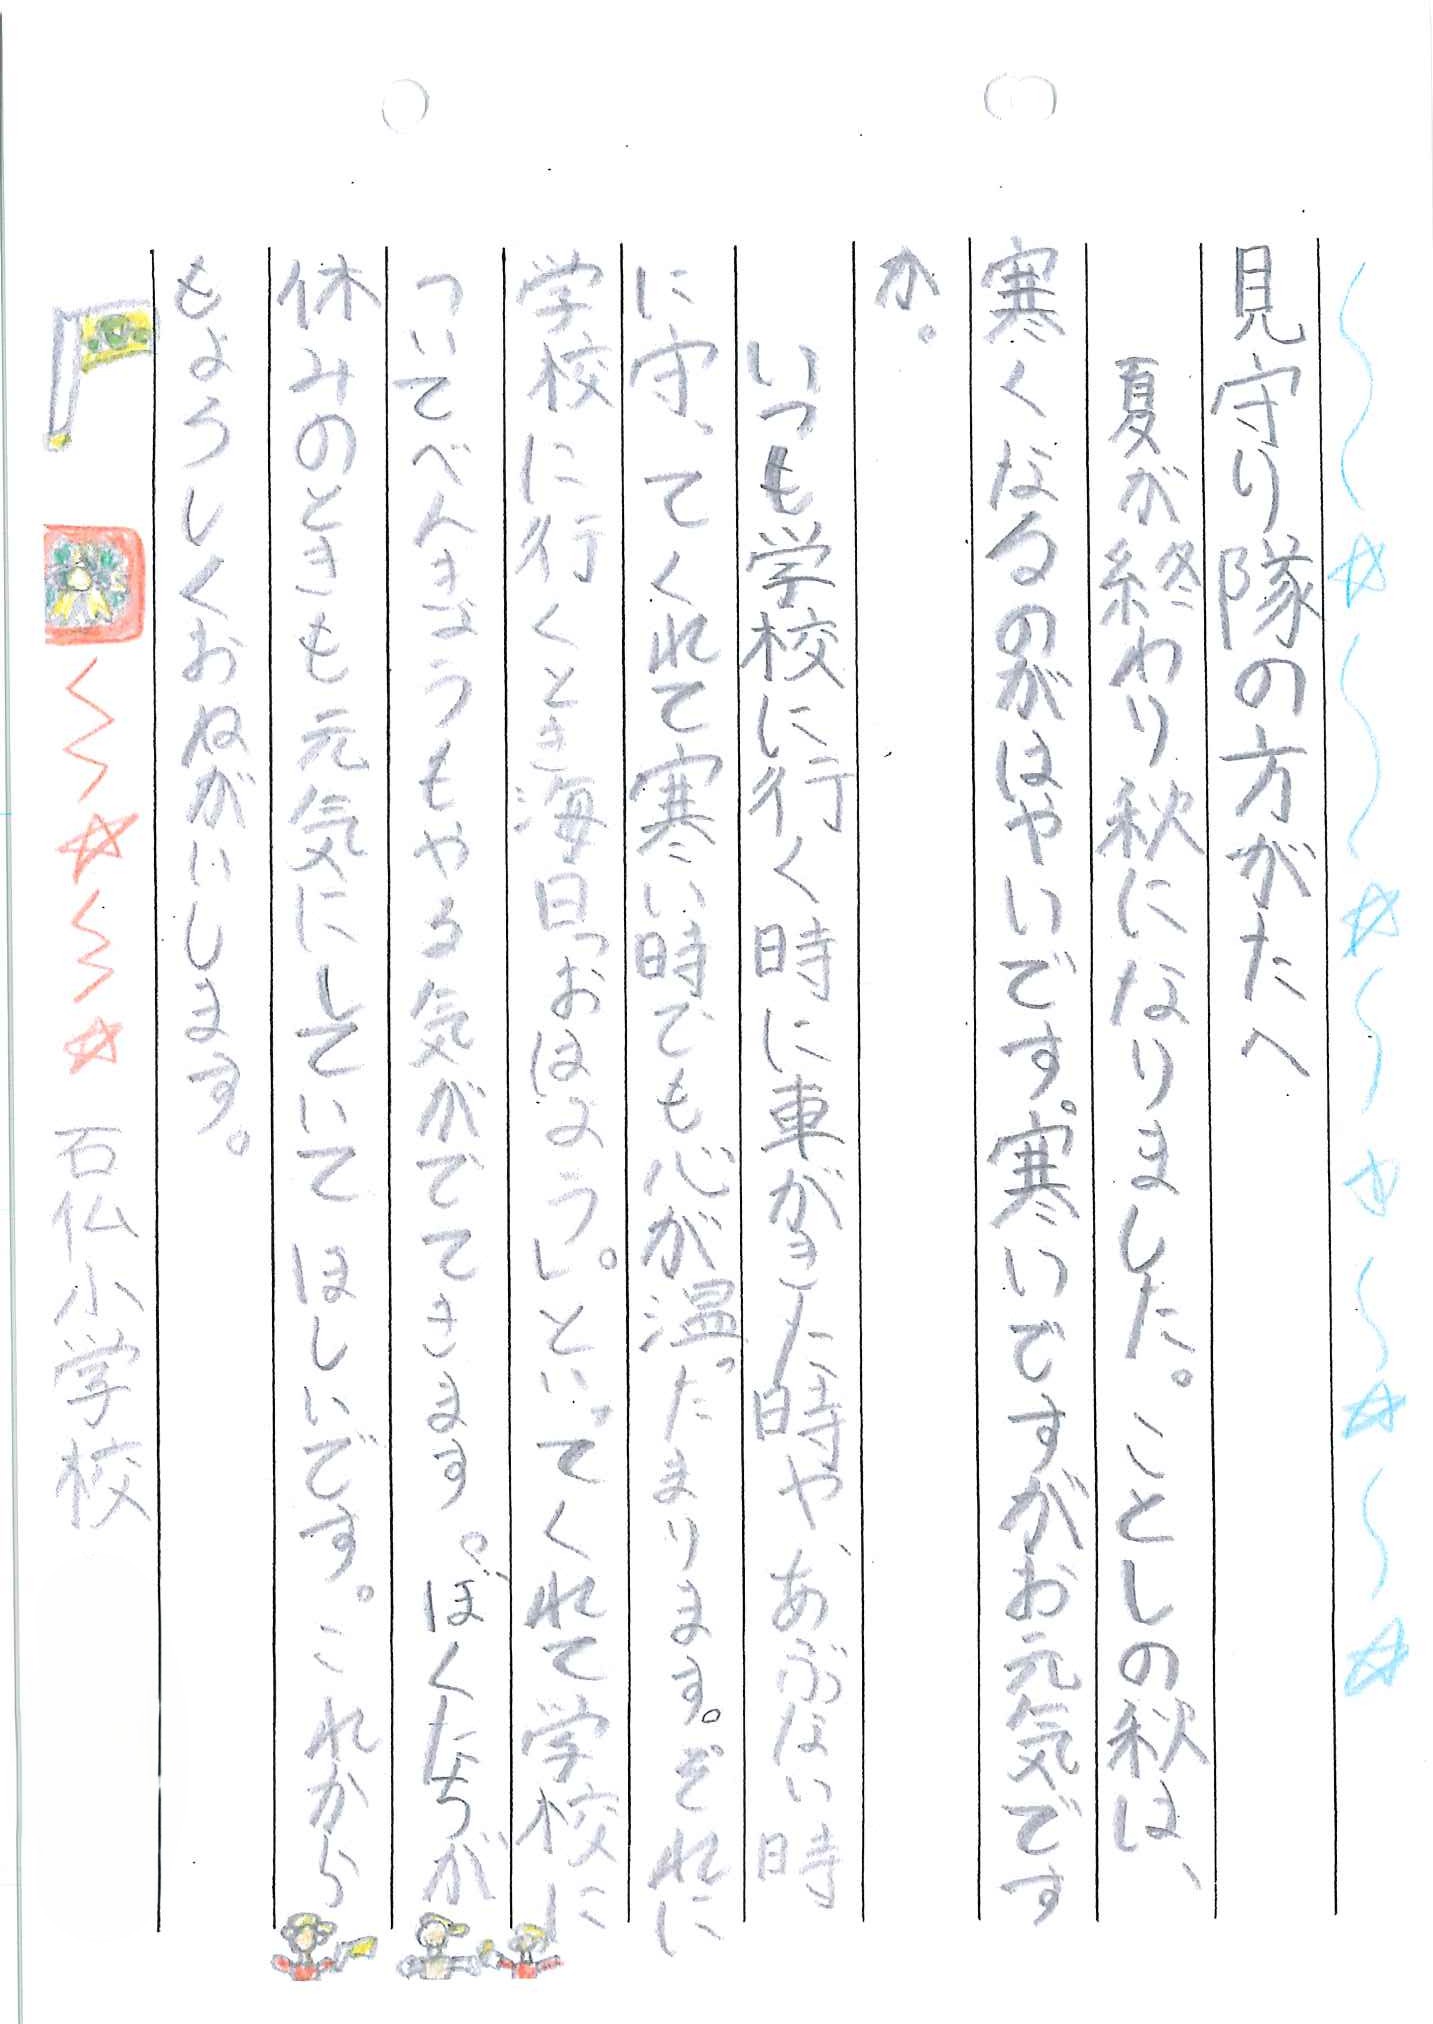 見守り隊の方がたへ
夏が終わり秋になりました。ことしの秋は、
寒くなるのがはやいです。寒いですがお元気です
か。
いつも学校に行く時に車がきた時や、あぶない時
に守ってくれて寒い時でも心が温ったまります。それに
学校に行くとき海日「おはよう。」といってくれて学校に
ついてべんきょうもやる気がでてきます。ぼくたちが
休みのときも元気にしていてほしいです。これから
もよろしくおねがいします。
石仏小学校